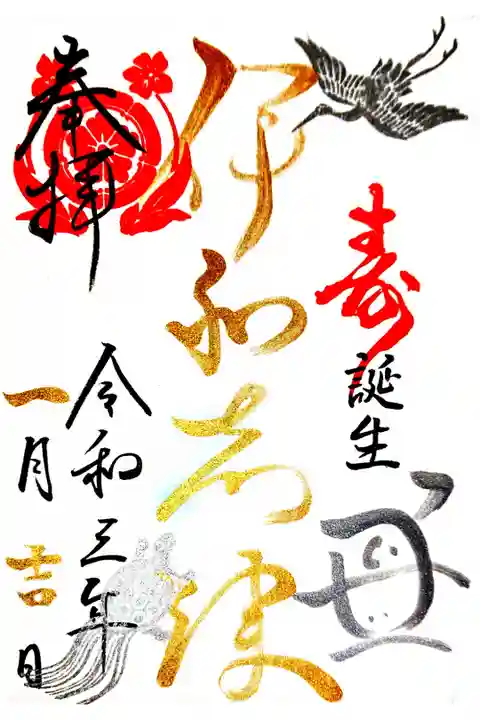 寿誕生
丑
伊和志津
奉拝
令和三年
一月吉日